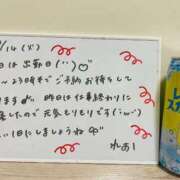 /14 (火)
日は 出勤日(´`)♡
〜23時まで ご予約 お待ちして
ます 昨日は仕事終わりに
したので 元気もりもりです(´-`)
い1日にしましょうね
れあ
レ
スカ